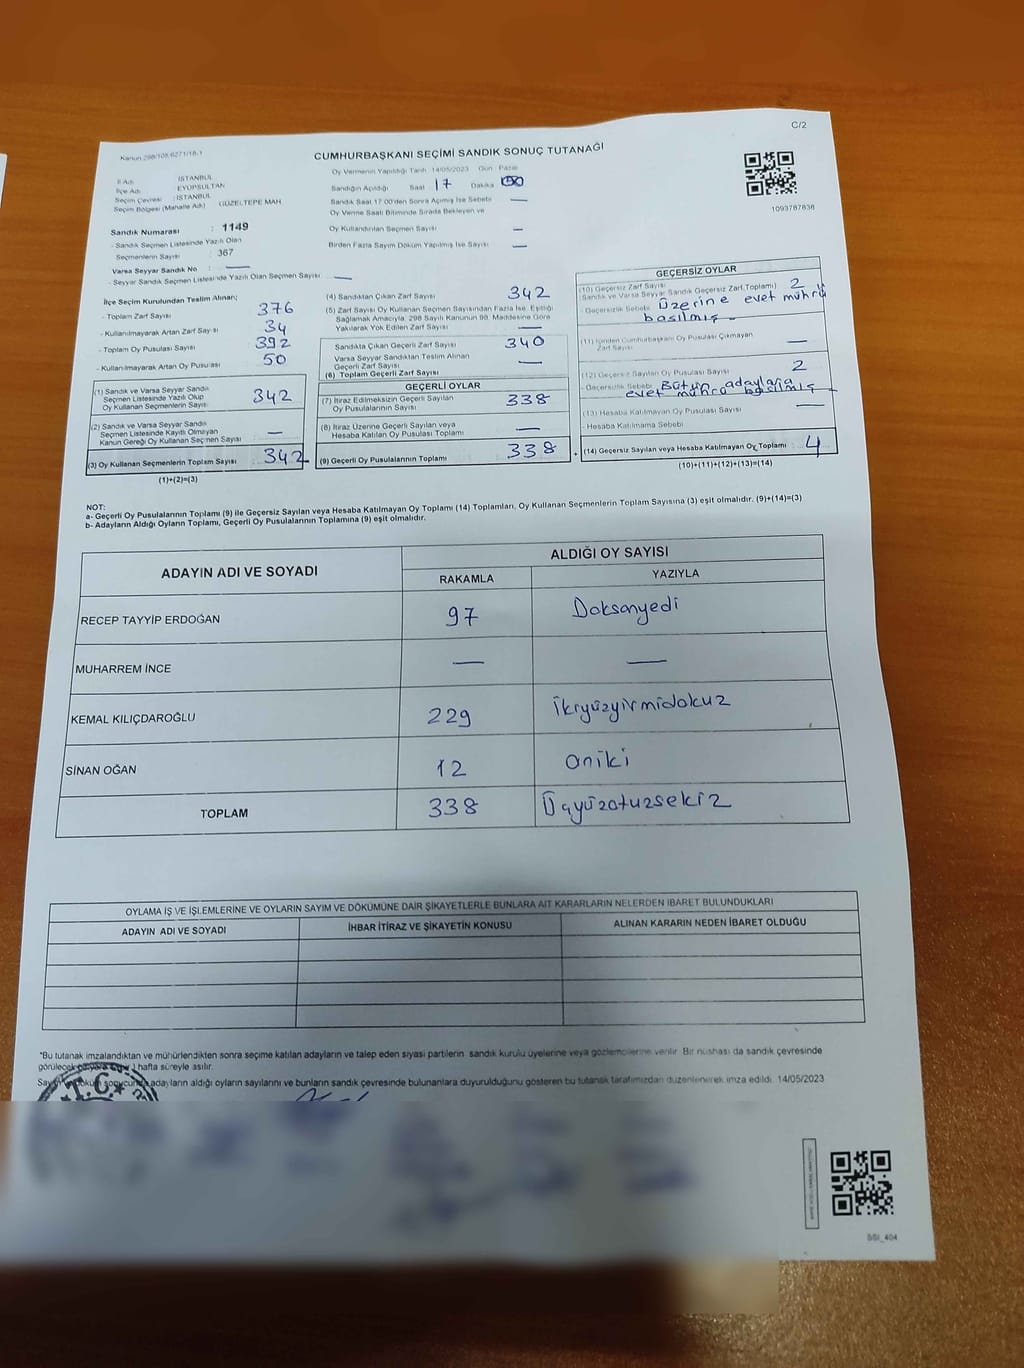 C/2
Kanun 298/105,6271/16-1
CUMHURBAŞKANI SEÇİMİ SANDIK SONUÇ TUTANAĞI
1093787836
İl Adı : İSTANBUL
İlçe Adı : EYÜPSULTAN
Seçim Çevresi : İSTANBUL
Seçim Bölgesi (Mahalle Adı) : GÜZELTEPE MAH
Sandık Numarası : 1149
- Sandık Seçmen Listesinde Yazılı Olan
Seçmenlerin Sayısı : 367
Varsa Seyyar Sandık No : —
- Seyyar Sandık Seçmen Listesinde Yazılı Olan Seçmen Sayısı : —
Oy Vermenin Yapıldığı Tarih 14/05/2023 Gün : Pazar
Sandığın Açıldığı Saat 17 Dakika 00
Sandık Saat 17.00'den Sonra Açılmış İse Sebebi —
Oy Verme Saati Bitiminde Sırada Bekleyen ve
Oy Kullandırılan Seçmen Sayısı —
Birden Fazla Sayım Döküm Yapılmış İse Sayısı —
İlçe Seçim Kurulundan Teslim Alınan;
- Toplam Zarf Sayısı 376
- Kullanılmayarak Artan Zarf Sayısı 34
- Toplam Oy Pusulası Sayısı 392
- Kullanılmayarak Artan Oy Pusulası 50
(1) Sandık ve Varsa Seyyar Sandık
Seçmen Listesinde Yazılı Olup
Oy Kullanan Seçmenlerin Sayısı 342
(2) Sandık ve Varsa Seyyar Sandık
Seçmen Listesinde Kayıtlı Olmayan
Kanun Gereği Oy Kullanan Seçmen Sayısı —
(3) Oy Kullanan Seçmenlerin Toplam Sayısı 342
(1)+(2)=(3)
(4) Sandıktan Çıkan Zarf Sayısı 342
(5) Zarf Sayısı Oy Kullanan Seçmen Sayısından Fazla İse, Eşitliği
Sağlamak Amacıyla, 298 Sayılı Kanunun 98. Maddesine Göre
Yakılarak Yok Edilen Zarf Sayısı —
Sandıkta Çıkan Geçerli Zarf Sayısı 340
Varsa Seyyar Sandıktan Teslim Alınan
Geçerli Zarf Sayısı —
(6) Toplam Geçerli Zarf Sayısı
GEÇERLİ OYLAR
(7) İtiraz Edilmeksizin Geçerli Sayılan
Oy Pusulasının Sayısı 338
(8) İtiraz Üzerine Geçerli Sayılan veya
Hesaba Katılan Oy Pusulası Toplamı —
(9) Geçerli Oy Pusulalarının Toplamı 338
GEÇERSİZ OYLAR
(10) Geçersiz Zarf Sayısı
(Sandık ve Varsa Seyyar Sandık Geçersiz Zarf Toplamı) 2
- Geçersizlik Sebebi Üzerine evet mührü
basılmış -
(11) İçinden Cumhurbaşkanı Oy Pusulası Çıkmayan
Zarf Sayısı —
(12) Geçersiz Sayılan Oy Pusulası Sayısı 2
- Geçersizlik Sebebi Bütün adaylara
evet mührü basılmış -
(13) Hesaba Katılmayan Oy Pusulası Sayısı —
- Hesaba Katılmama Sebebi
(14) Geçersiz Sayılan veya Hesaba Katılmayan Oy Toplamı 4
(10)+(11)+(12)+(13)=(14)
NOT:
a- Geçerli Oy Pusulalarının Toplamı (9) ile Geçersiz Sayılan veya Hesaba Katılmayan Oy Toplamı (14) Toplamları, Oy Kullanan Seçmenlerin Toplam Sayısına (3) eşit olmalıdır. (9)+(14)=(3)
b- Adayların Aldığı Oyların Toplamı, Geçerli Oy Pusulalarının Toplamına (9) eşit olmalıdır.
ADAYIN ADI VE SOYADI
ALDIĞI OY SAYISI
RAKAMLA YAZIYLA
RECEP TAYYİP ERDOĞAN 97 Doksanyedi
MUHARREM İNCE — —
KEMAL KILIÇDAROĞLU 229 ikiyüzyirmidokuz
SİNAN OĞAN 12 oniki
TOPLAM 338 Üçyüzotuzsekiz
OYLAMA İŞ VE İŞLEMLERİNE VE OYLARIN SAYIM VE DÖKÜMÜNE DAİR ŞİKAYETLERLE BUNLARA AİT KARARLARIN NELERDEN İBARET BULUNDUKLARI
ADAYIN ADI VE SOYADI İHBAR İTİRAZ VE ŞİKAYETİN KONUSU ALINAN KARARIN NEDEN İBARET OLDUĞU
*Bu tutanak imzalandıktan ve mühürlendikten sonra seçime katılan adayların ve talep eden siyasi partilerin sandık kurulu üyelerine veya gözlemcilerine verilir. Bir nüshası da sandık çevresinde
görülecek hafta süreyle asılır.
adayların aldığı oyların sayılarını ve bunların sandık çevresinde bulunanlara duyurulduğunu gösteren bu tutanak tarafımızdan düzenlenerek imza edildi. 14/05/2023
T.C.
SSİ_404